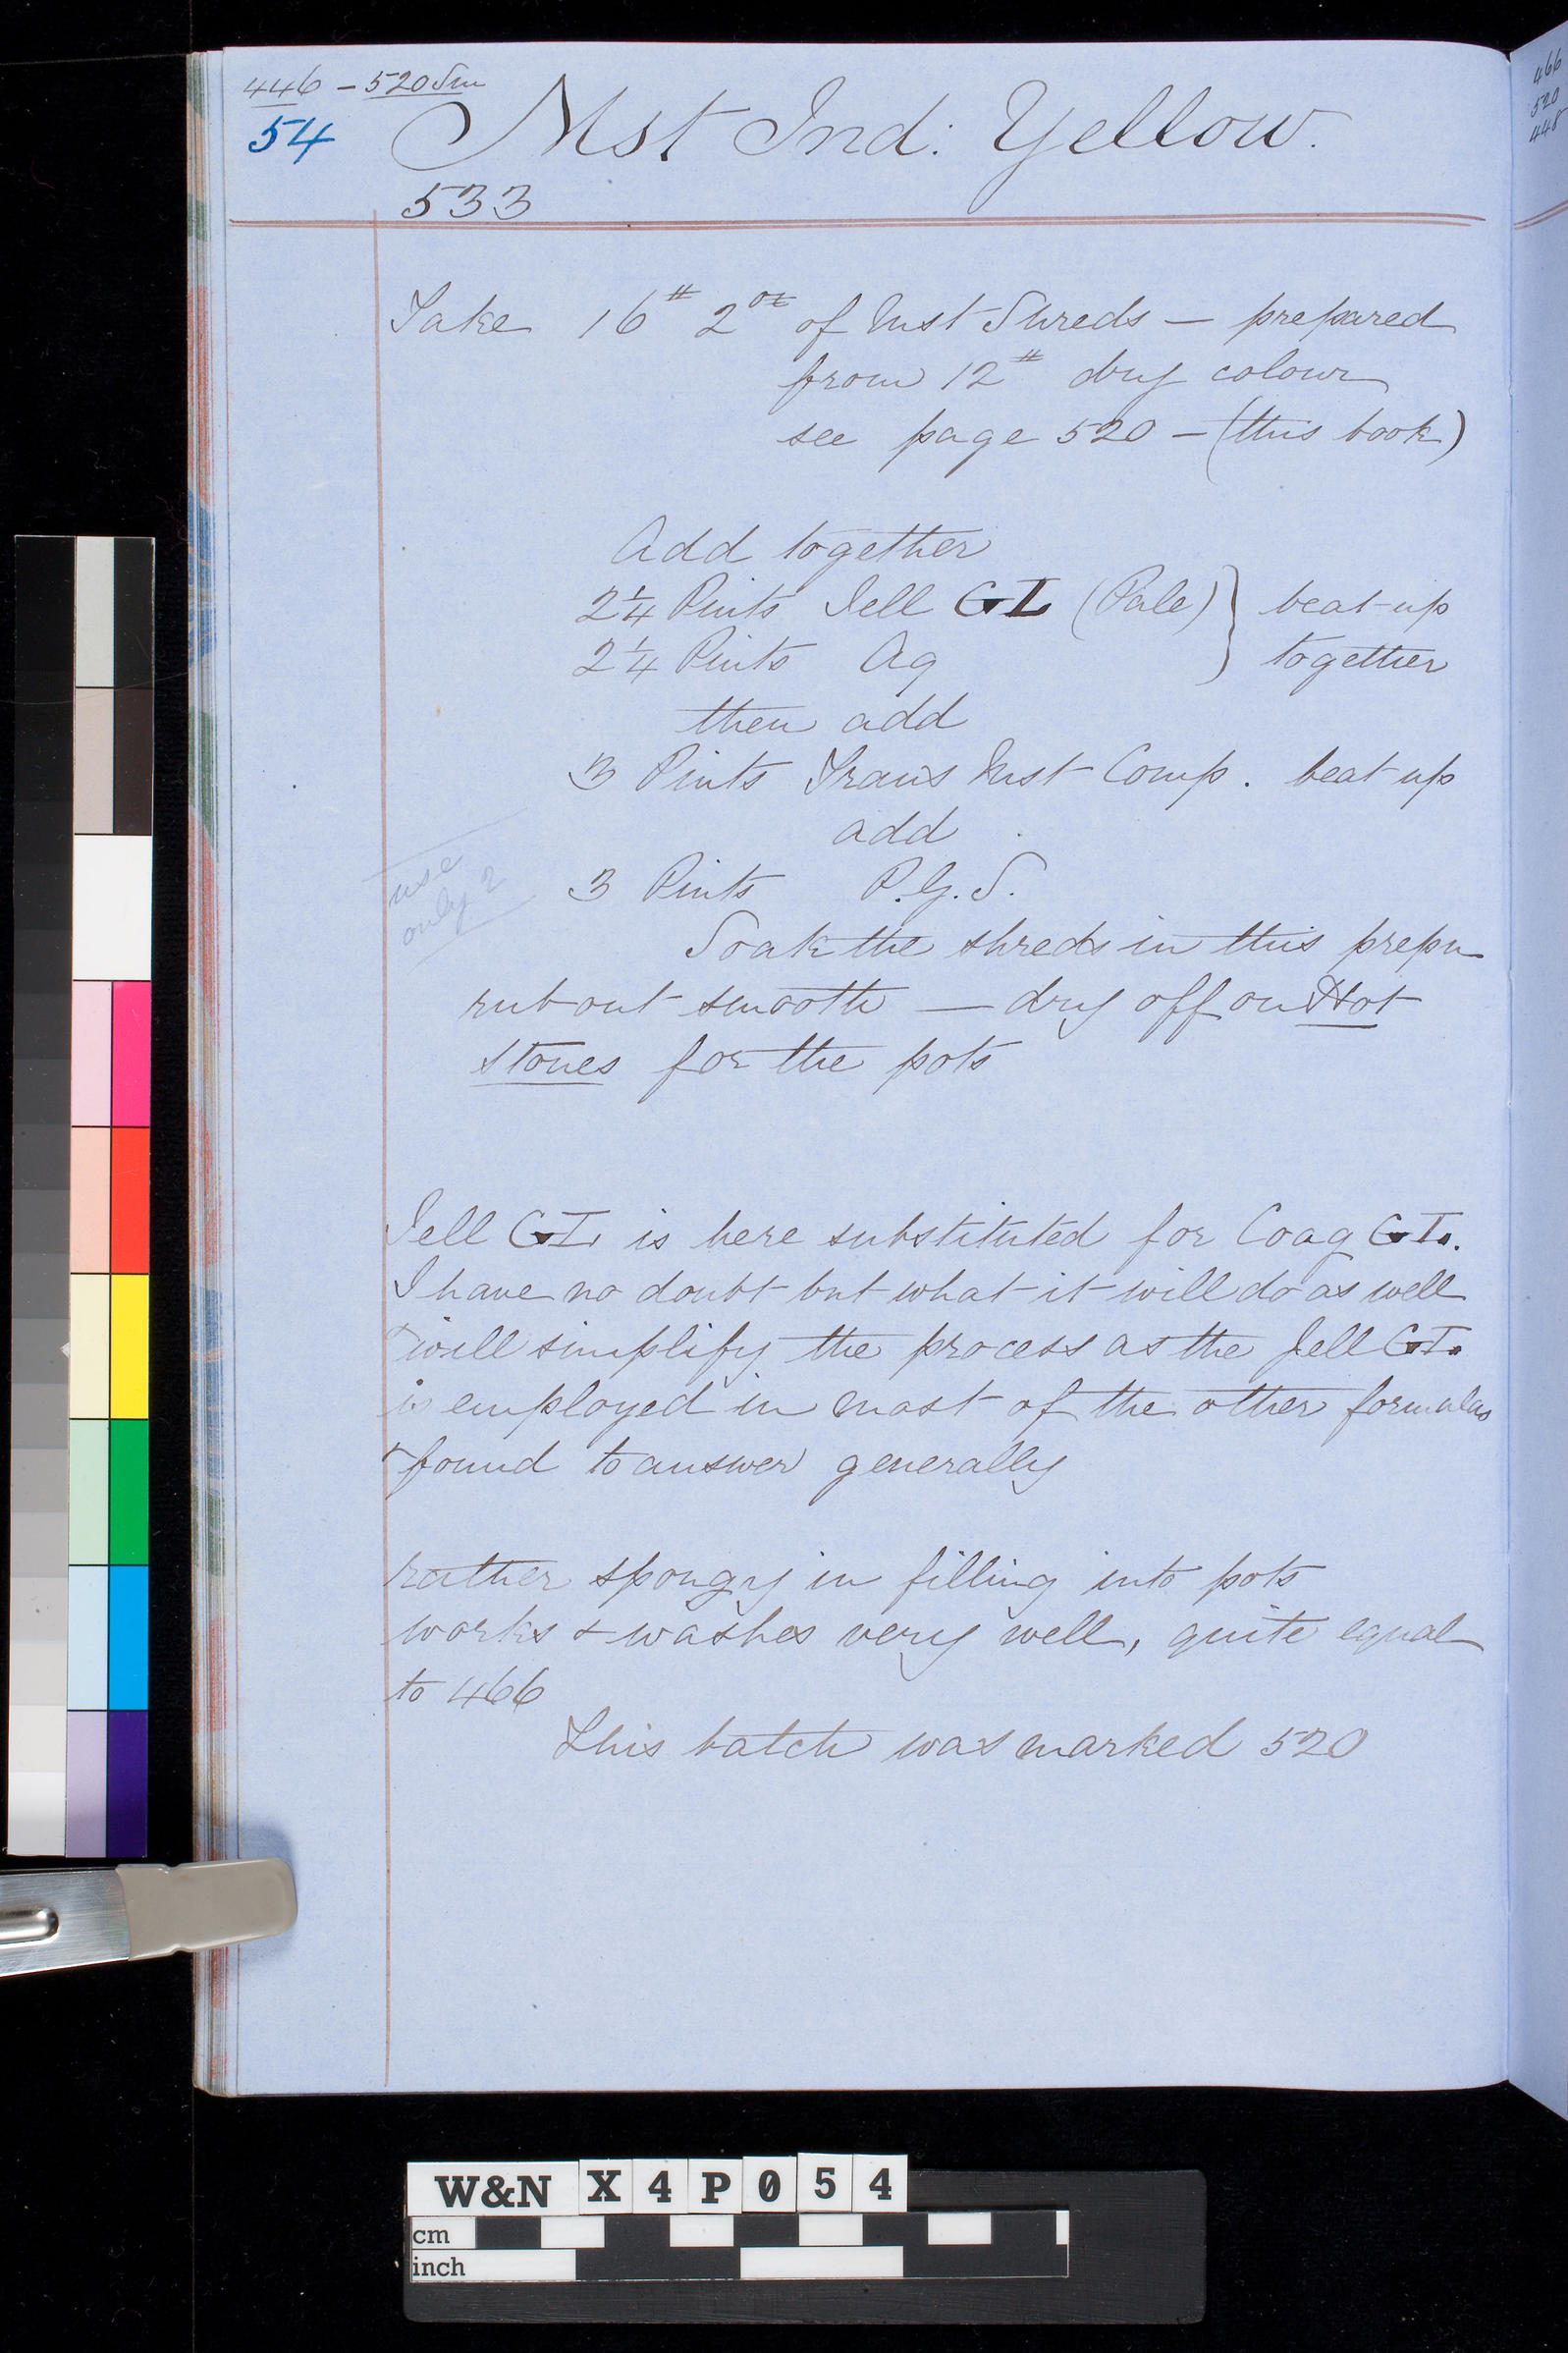 446 – 520 Sm
54
Mst Ind: Yellow.
533
Take 16# 2oz of Mst Shreds — prepared
from 12# dry colour
see page 520 – (this book)
Add together
2¼ Pints Jell GI (Pale) } beat up
2¼ Pints Aq } together
then add
3 Pints Trans Mst Comp. beat up
add
use
only 2
3 Pints P.G.S.
Soak the shreds in this prepn
rub out smooth — dry off on Hot
stones for the pots
Jell GI. is here substituted for Coag GI.
I have no doubt but what it will do as well
& will simplify the process as the Jell GI.
is employed in most of the other formulas
& found to answer generally
rather spongy in filling into pots
works & washes very well, quite equal
to 466
This batch was marked 520
466
520
448
W&N X4P054
cm
inch